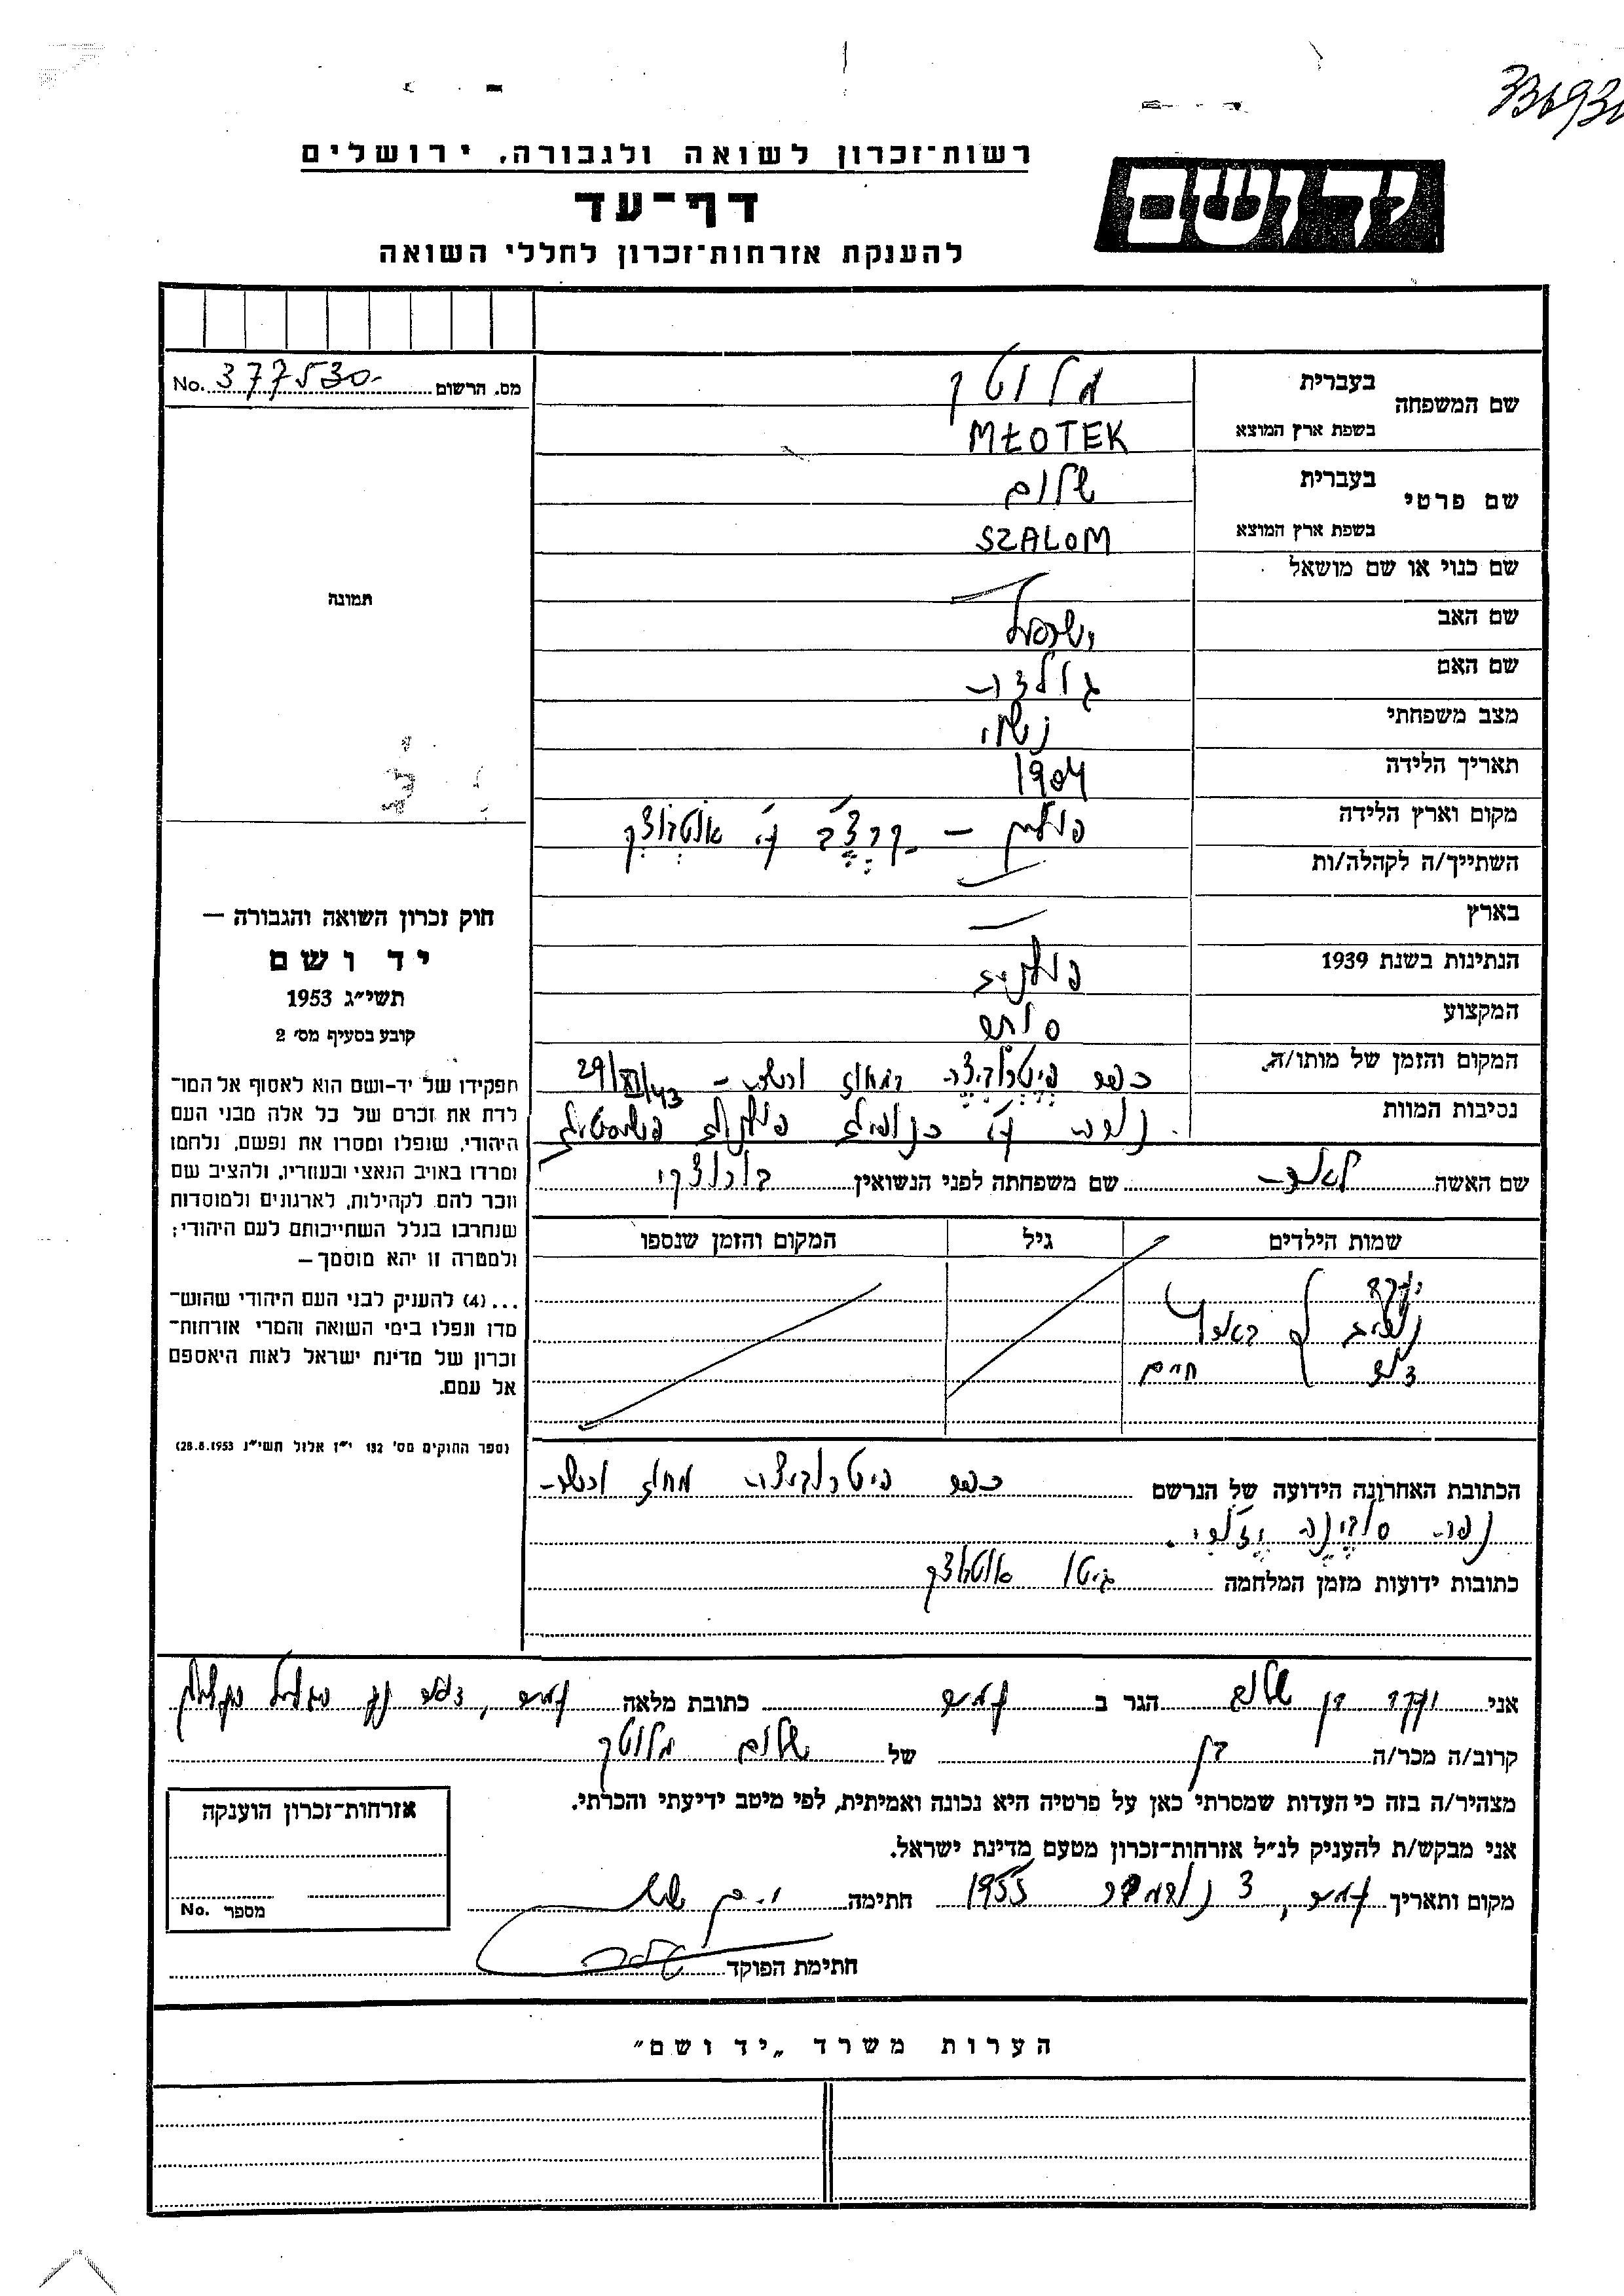 רשות־זכרון לשואה ולגבורה, ירושלים
דף־עד
להענקת אזרחות־זכרון לחללי השואה
יד ושם
מס. הרשום No. 377530
שם המשפחה
בעברית מלוטק
בשפת ארץ המוצא MŁOTEK
שם פרטי
בעברית שלום
בשפת ארץ המוצא SZALOM
שם כנוי או שם מושאל
שם האב ישראל
שם האם גולדה
מצב משפחתי נשוי
תאריך הלידה 1904
מקום וארץ הלידה פולין – קרצ'ב ע"י אוטבוצק
השתייך/ה לקהלה/ות
בארץ
הנתינות בשנת 1939 פולנית
המקצוע סוחר
המקום והזמן של מותו/ה כפר במחוז ורשה – 29/XI/43
נסיבות המוות נרצח ע"י פולנים
שם האשה לאה שם משפחתה לפני הנשואין
שמות הילדים גיל המקום והזמן שנספו
יעקב
בארץ
חיים
הכתובת האחרונה הידועה של הנרשם כפר מחוז ורשה
נפה
כתובות ידועות מזמן המלחמה גיטו אוטבוצק
תמונה
חוק זכרון השואה והגבורה –
יד ושם
תשי״ג 1953
קובע בסעיף מס׳ 2
תפקידו של יד-ושם הוא לאסוף אל המו־
לדת את זכרם של כל אלה מבני העם
היהודי, שנפלו ומסרו את נפשם, נלחמו
ומרדו באויב הנאצי ובעוזריו, ולהציב שם
וזכר להם לקהילות, לארגונים ולמוסדות
שנחרבו בגלל השתייכותם לעם היהודי;
ולמטרה זו יהא מוסמך –
...(4) להעניק לבני העם היהודי שהוש־
מדו ונפלו בימי השואה והמרי אזרחות־
זכרון של מדינת ישראל לאות היאספם
אל עמם.
(ספר החוקים מס׳ 132 י״ז אלול תשי״ג 28.8.1953)
אני יעקב בן שלום הגר ב כתובת מלאה
קרוב/ה מכר/ה בן של שלום מלוטק
מצהיר/ה בזה כי העדות שמסרתי כאן על פרטיה היא נכונה ואמיתית, לפי מיטב ידיעתי והכרתי.
אני מבקש/ת להעניק לנ״ל אזרחות־זכרון מטעם מדינת ישראל.
מקום ותאריך 3 נובמבר 1955 חתימה
חתימת הפוקד
אזרחות־זכרון הוענקה
מספר No.
הערות משרד „יד ושם״